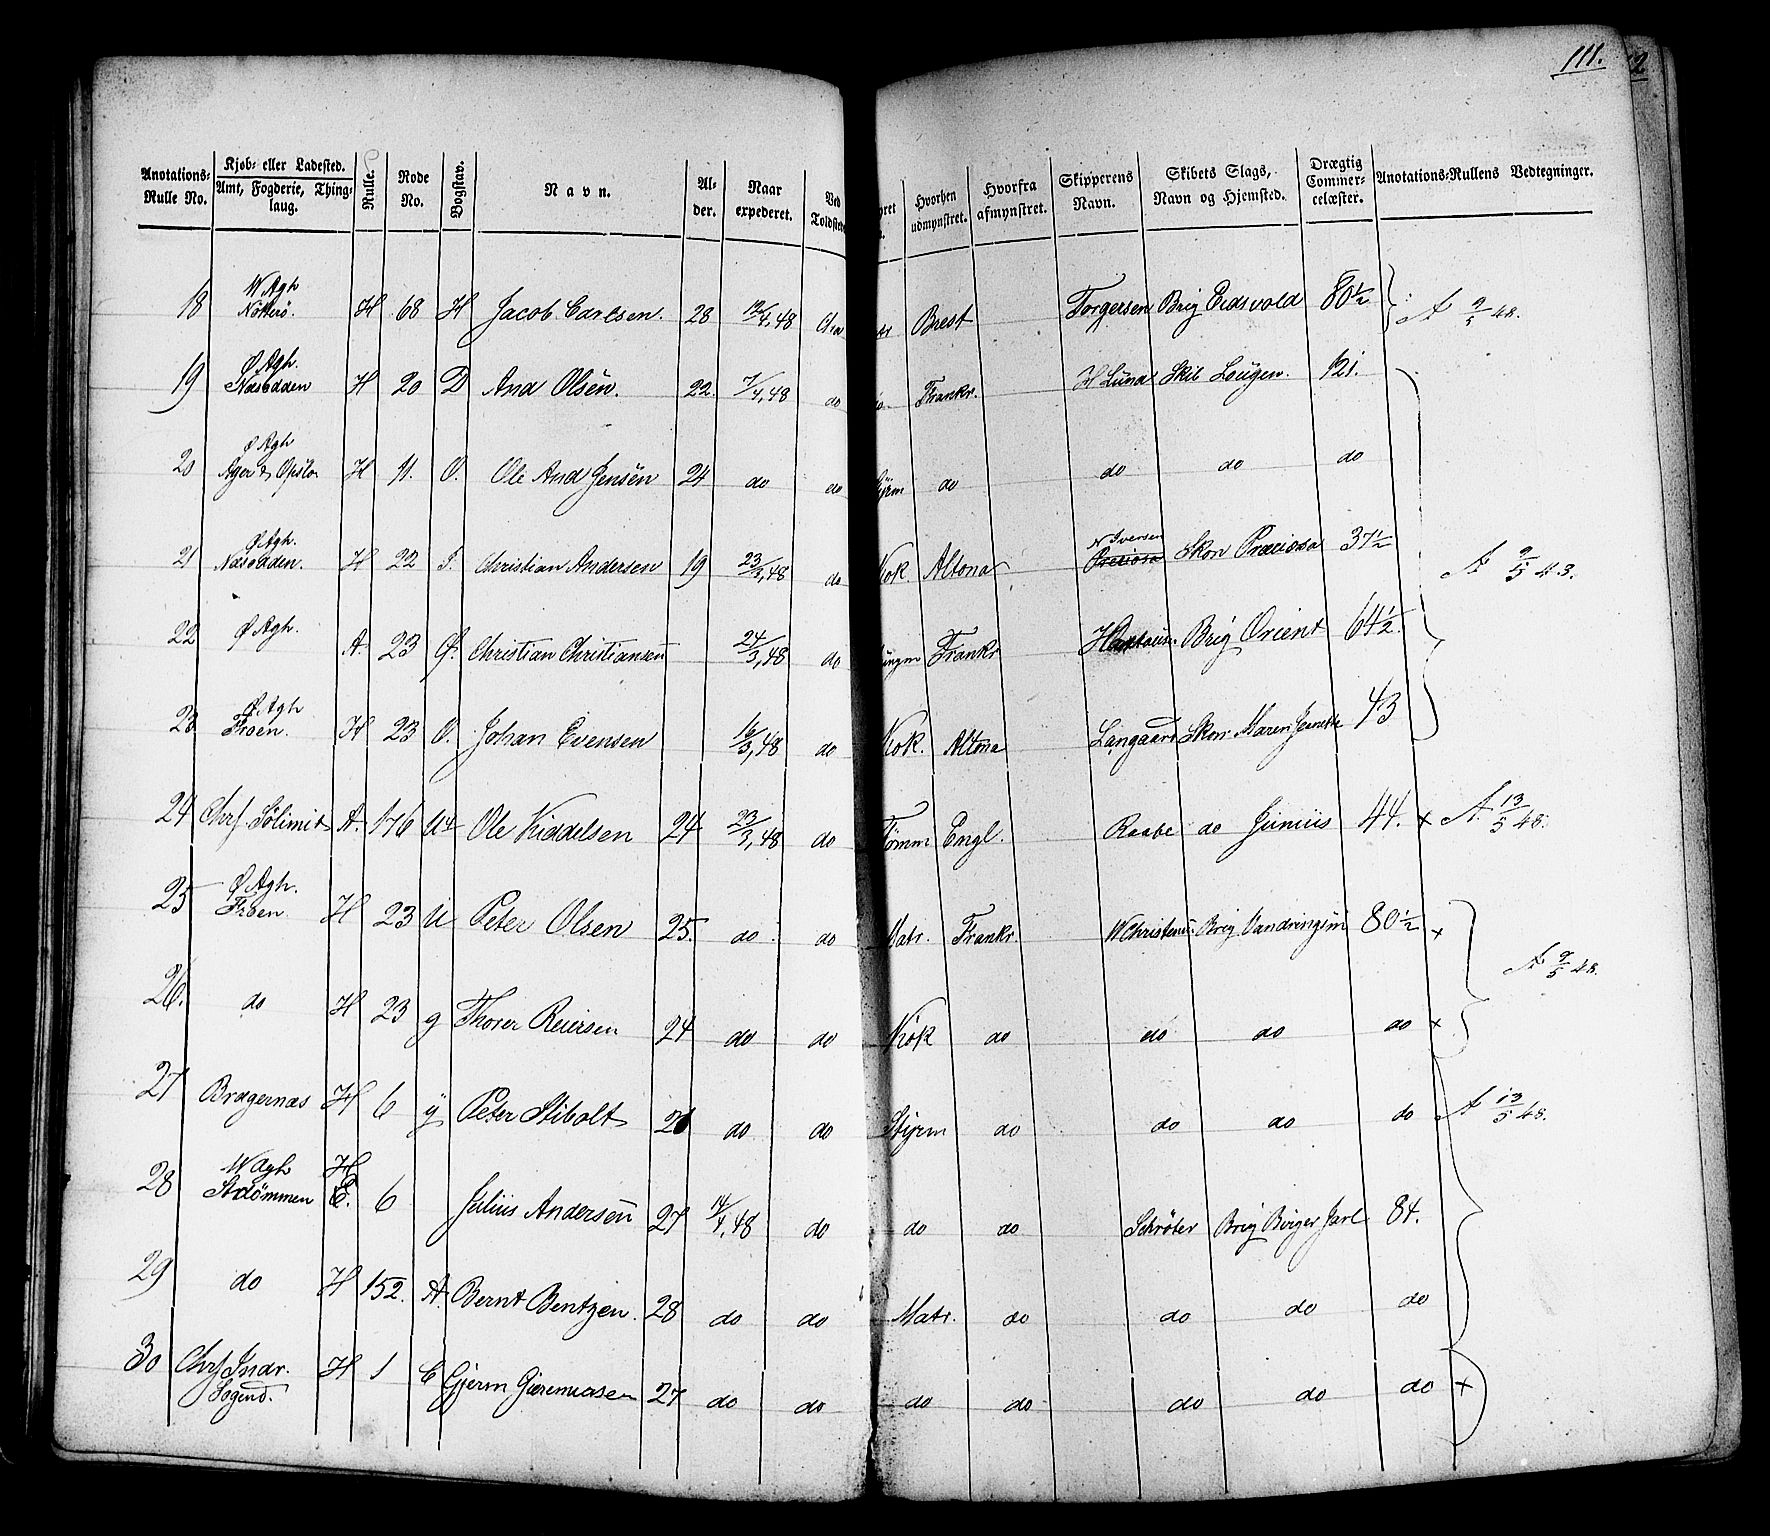 111.
Anotations-Rulle No. Kjøb- eller Ladested. Amt, Fogderie, Thinglaug. Rulle. Node No. Bogstav. Navn. Alder. Naar expederet. Ved Toldsted Hvorhen udmynstret. Hvorfra afmynstret. Skipperens Navn. Skibets Slags, Navn og Hjemsted. Drægtig Commercelæster. Anotations-Rullens Vedtegninger.
W Agh
18 Nötterö. H 68 H Jacob Carlsen. 28 12/4,48 Brest Torgersen Brig Eidsvold 80½ A 9/5 48.
Ø Agh.
19 Næsodden H 20 D And Olsen. 22. 7/4,48 do Frankr. H Lund Skib Lougen. 121.
Ø Agh
20 Ager & Opslo H 11. O. Ole And Jensen 24 do do do do do do
Ø Agh. N Iversen
21 Næsodden. H 22 Christian Andersen 19 23/3,48 do Kok. Altona Preciosa Skon Preciosa 37½ A 9/5 48.
22 Ø Agh. A. 23 Christian Christiansen 24/3,48 do Frankr Brig Orient 64½.
Ø Agh
23 Froen. H 23 O. Johan Evensen 16/3,48 do Kok. Altona Langaard Skon Maren 43
24 A. 176 Ole Kiddelsen 24 23/3,48 do Tömm Engl. Raabe do Junius 44. x A. 13/5 48.
Ø Agh.
25 Froen. H 23 U Peter Olsen 25. do do Matr. Frankr. W Christensen Brig 80½ x
A 9/5 48.
26. do H 23 g Thorer Reiersen 24 do do Kok do do do do x
27 Bragernæs H 6 y Peter Stibolt do do Styrm do do do do A 13/5 48.
W Agh H
28 Strömmen 6 Julius Andersen 27 14/4,48 do do do Schröter Brig Birger Jarl 84.
29 do H 152. A. Bernt Bentzen. 28 do do Matr. do do do do
30 Chrf Indr. H 1 C Gjerm Gieremiasen 27 do do do do do do do x